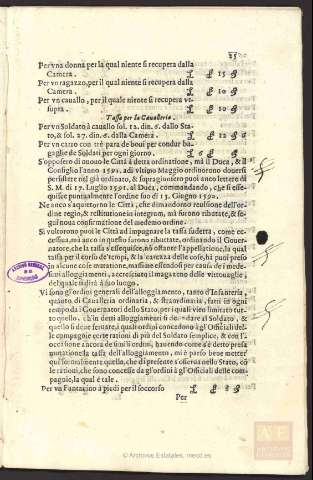 25
Per vna donna per la qual niente si recupera dalla
Camera. L ß 15 ϑ
Per vn ragazzo, per il qual niente si recupera dalla
Camera. L ß 10 ϑ
Per vn cauallo, per il quale niente si recupera vt
supra. L ß 10 ϑ
Tassa per la Caualleria.
Per vn Soldato à cauallo sol. 12. din. 6. dallo Sta-
to, & sol. 27. din. 6. dalla Camera. L ß 12 ϑ 6
Per vn carro con trè para de boui per condur ba-
gaglie de Soldati per ogni giorno L 6 ß ϑ
S'opposero di nuouo le Città à detta ordinatione, mà il Duca, & il
Consiglio l'anno 1591. adi vltimo Maggio ordinorono douersi
persistere nel già ordinato, & sopragionsero puoi anco lettere di
S. M. di 17. Luglio 1591. al Duca, commandando, che si esse-
quisse puntualmente l'ordine suo di 13. Giugno 1590.
Ne anco s'aquietorno le Città, che dimandorono reuisione dell'or-
dine regio, & restitutione in integrum, mà furono ributtate, & se-
guì noua confirmatione del medemo ordine.
Si voltorono puoi le Città ad impugnare la tassa sudetta, come ec-
cessiua, mà anco in questo furono ributtate, ordinando il Gouer-
natore, che la tassa s'essequisse, nõ ostante l'appellatione, la qual
tassa per il corso de' tempi, & la carezza delle cose, hà puoi preso
in alcune cose mutatione, massime essendosi per causa de i mede-
mi alloggiamenti, accresciuto il mag.to delle vittouaglie,
del quale si dirà à suo luogo.
Vi sono gl'ordini generali dell'alloggiamento, tanto d'Infanteria,
quanto di Caualleria ordinaria, & straordinaria, fatti in ogni
tempo da i Gouernatori dello Stato, per i quali vien limitato tut-
to quello, ch'in detti alloggiamenti si deue dare al Soldato, &
quello si deue seruare, i quali ordini concedono à gl'Officiali del-
le compagnie certe rationi di più del Soldato semplice, & con l'
occasione ancora de simili ordini, hauendo come s'è detto presa
mutatione la tassa dell'alloggiamento, mi è parso bene metter
qui sotto la tassa quella, che di presente s'osserua nello Stato, cõ
le rationi, che sono concesse da gl'ordini à gl'Officiali delle com-
pagnie, la qual è tale.
Per vn Fantacino à piedi per il soccorso L ß 8 ϑ
Per
© Archivos Estatales, mecd.es